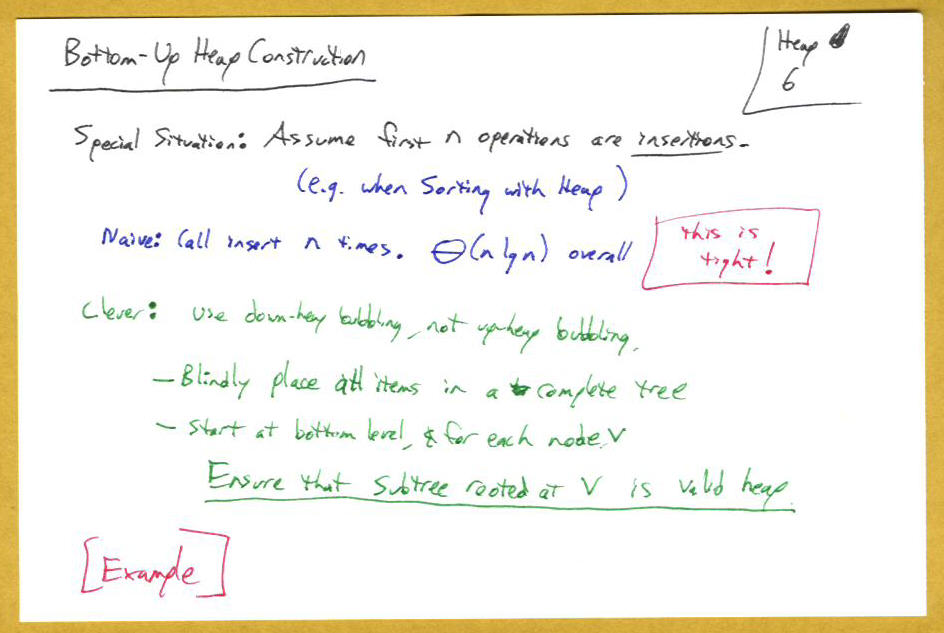 Bottom-Up Heap Construction
Heap
6
Special Situation: Assume first n operations are insertions.
(e.g. when Sorting with Heap)
Naive: Call insert n times. Θ(n lg n) overall
this is
tight!
Clever: use down-heap bubbling, not up-heap bubbling.
- Blindly place all items in a complete tree
- Start at bottom level, & for each node V
Ensure that subtree rooted at V is valid heap.
[Example]